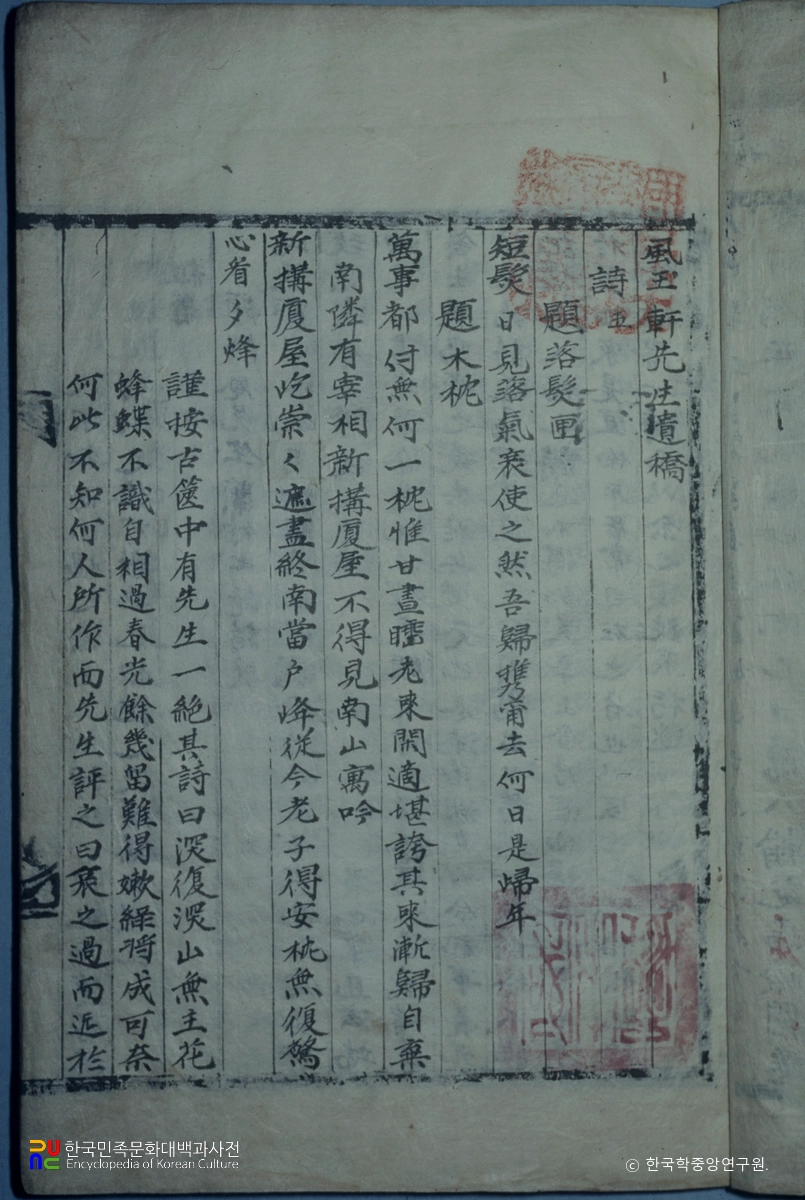 風玉軒先生遺稿
詩五
題落髮匣
短髮日見落氣衰使之然吾歸携甯去何日是歸年
題木枕
萬事都付無何一枕惟甘晝睡老來閑適堪誇其來漸歸自棄
南隣有宰相新搆厦屋不得見南山寓吟
新搆厦屋屹崇〻遮盡終南當戶峰從今老子得安枕無復驚
心看夕烽
謹按古篋中有先生一絶其詩曰深復深山無主花
蜂蝶不識自相過春光餘幾留難得嫩緑將成可奈
何此不知何人所作而先生評之曰哀之過而近於
한국민족문화대백과사전
Encyclopedia of Korean Culture
ⓒ 한국학중앙연구원.